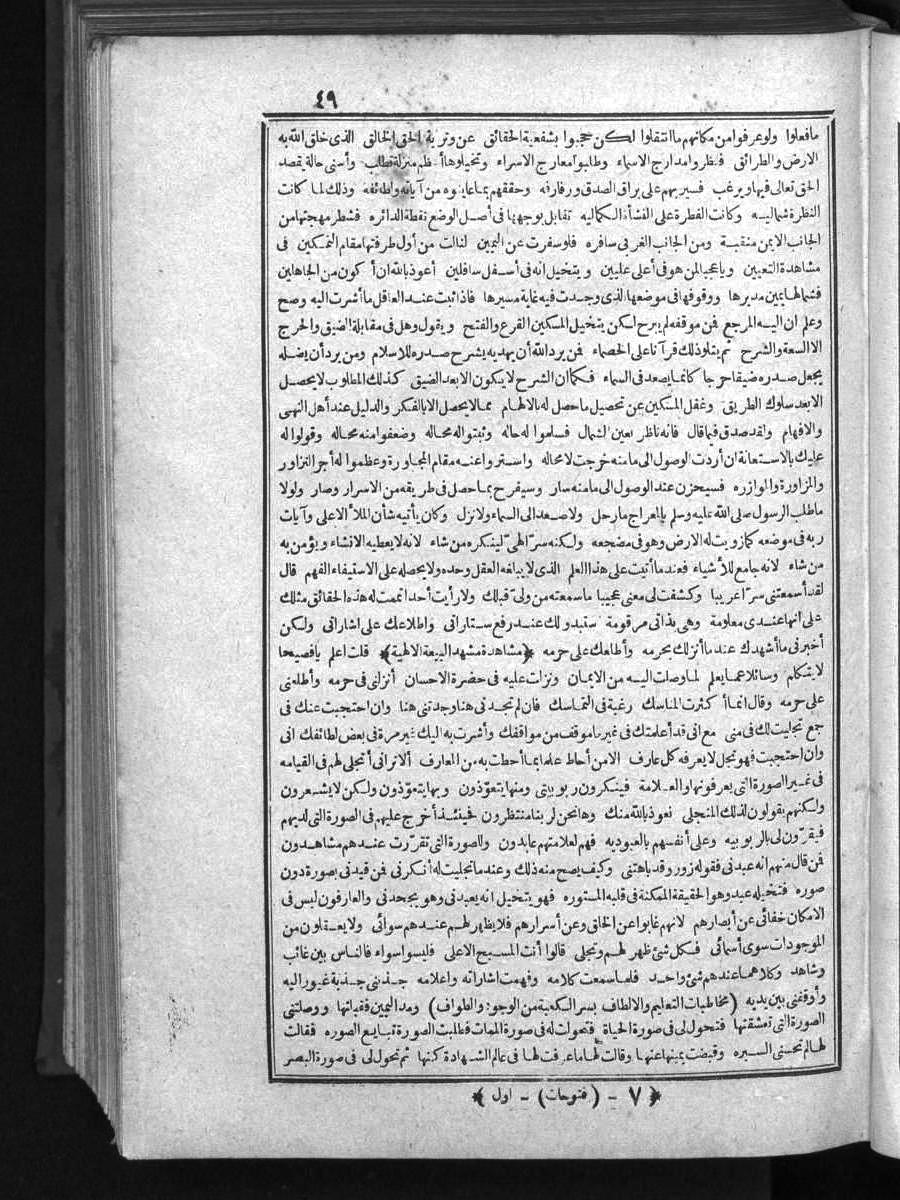 ٤٩
مافعلوا ولوعرفوا من مكانهم ما انتقلوا لكن حجبوا بشفعية الحقائق عن وترية الحق الخالق الذى خلق الله به
الارض والطرائق فنظروا مدارج الاسماء وطلبوا معارج الاسراء وتخيلوها أعظم منزلة تطلب وأسنى حالة يقصد
الحق تعالى فيها ويرغب فسير بهم على براق الصدق ورفارفه وحققهم بما عاينوه من آياته ولطائفه وذلك لما كانت
النظرة شماليه وكانت الفطرة على النشأة الكماليه تقابل بوجهها فى أصل الوضع نقطة الدائره فشطر مهجتها من
الجانب الايمن منقبة ومن الجانب الغربى سافره فلوسفرت عن اليمين لنالت من أول طرفتها مقام التمكين فى
مشاهدة التعيين وياعجبا لمن هو فى أعلى عليين ويتخيل انه فى أسفل سافلين أعوذ بالله أن أكون من الجاهلين
فشمالها يمين مديرها ووقوفها فى موضعها الذى وجدت فيه غاية مسيرها فاذا ثبت عند العاقل ما أشرت اليه وصح
وعلم ان اليه المرجع فمن موقفه لم يبرح لكن يتخيل المسكين القرع والفتح ويقول وهل فى مقابلة الضيق والحرج
الا السعة والشرح ثم يتلو ذلك قرآنا على الخصماء فمن يرد الله أن يهديه يشرح صدره للاسلام ومن يرد أن يضله
يجعل صدره ضيقا حرجا كأنما يصعد فى السماء فكما أن الشرح لا يكون الا بعد الضيق كذلك المطلوب لا يحصل
الا بعد سلوك الطريق وغفل المسكين عن تحصيل ما حصل له بالالهام مما لا يحصل الا بالفكر والدليل عند أهل النهى
والافهام ولقد صدق فيما قال فانه ناظر بعين الشمال فسلموا له حاله وثبتوا له محاله وضعفوا منه محاله وقولوا له
عليك بالاستعانة ان أردت الوصول الى ما منه خرجت لامحاله واستروا عنه مقام المجاورة وعظموا له أجر التزاور
والمزاورة والموازره فسيحزن عند الوصول الى ما منه سار وسيفرح بما حصل فى طريقه من الاسرار وصار ولولا
ما طلب الرسول صلى الله عليه وسلم بالمعراج مارحل ولا صعد الى السماء ولا نزل وكان يأتيه شأن الملأ الاعلى وآيات
ربه فى موضعه كما زويت له الارض وهو فى مضجعه ولكنه سر الهى لينكره من شاء لانه لا يعطيه الانشاء ويؤمن به
من شاء لانه جامع للأشياء فعند ما أتيت على هذا العلم الذى لا يبلغه العقل وحده ولا يحصله على الاستيفاء الفهم قال
لقد أسمعتنى سرا غريبا وكشفت لى معنى عجيبا ما سمعته من ولى قبلك ولا رأيت أحدا تممت له هذه الحقائق مثلك
على انها عندى معلومة وهى بذاتى مرقومة ستبدو لك عند رفع ستاراتى واطلاعك على اشاراتى ولكن
أخبرنى ما أشهدك عند ما أنزلك بحرمه وأطلعك على حرمه ﴿مشاهدة مشهد البيعة الالهية﴾ قلت اعلم يافصيحا
لا يتكلم وسائلا عما يعلم لما وصلت اليه من الايمان ونزلت عليه فى حضرة الاحسان أنزلنى فى حرمه وأطلعنى
على حرمه وقال انما أكثرت المناسك رغبة فى التماسك فان لم تجدنى هنا وجدتنى هنا وان احتجبت عنك فى
جمع تجليت لك فى منى مع انى قد أعلمتك فى غير ما موقف من مواقفك وأشرت به اليك غير مرة فى بعض لطائفك انى
وان احتجبت فهو تجل لا يعرفه كل عارف الا من أحاط علما بما أحطت به من المعارف ألا ترانى أتجلى لهم فى القيامه
فى غير الصورة التى يعرفونها والعلامة فينكرون ربوبيتى ومنها يتعوذون وبها يتعوذون ولكن لا يشعرون
ولكنهم يقولون لذلك المتجلى نعوذ بالله منك وها نحن لربنا منتظرون فحينئذ أخرج عليهم فى الصورة التى لديهم
فيقرون لى بالربوبيه وعلى أنفسهم بالعبوديه فهم لعلامتهم عابدون وللصورة التى تقررت عندهم مشاهدون
فمن قال منهم انه عبدنى فقوله زور وقد باهتنى وكيف يصح منه ذلك وعند ما تجليت له أنكرنى فمن قيدنى بصورة دون
صوره فتخيله عبد وهو الحقيقة الممكنة فى قلبه المستوره فهو يتخيل انه يعبدنى وهو يجحدنى والعارفون ليس فى
الامكان خفائى عن أبصارهم لانهم غابوا عن الخلق وعن أسرارهم فلا يظهر لهم عندهم سوائى ولا يعقلون من
الموجودات سوى أسمائى فكل شئ ظهر لهم وتجلى قالوا أنت المسبح الاعلى فليسوا سواء فالناس بين غائب
وشاهد وكلاهما عندهم شئ واحد فلما سمعت كلامه وفهمت اشاراته واعلامه جذبنى جذبة غيور اليه
وأوقفنى بين يديه (مخاطبات التعليم والالطاف بسر الكعبة من الوجود والطواف) ومد اليمين فقبلتها ووصلتنى
الصورة التى تعشقتها فتحول لى فى صورة الحياة فتحولت له فى صورة الممات فطلبت الصورة تبايع الصوره فقالت
لها لم تحسنى السيره وقبضت يمينها عنها وقالت لها ما عرفت لها فى عالم الشهادة كنها ثم تحول لى فى صورة البصر
﴿ ٧ - (فتوحات) - اول ﴾